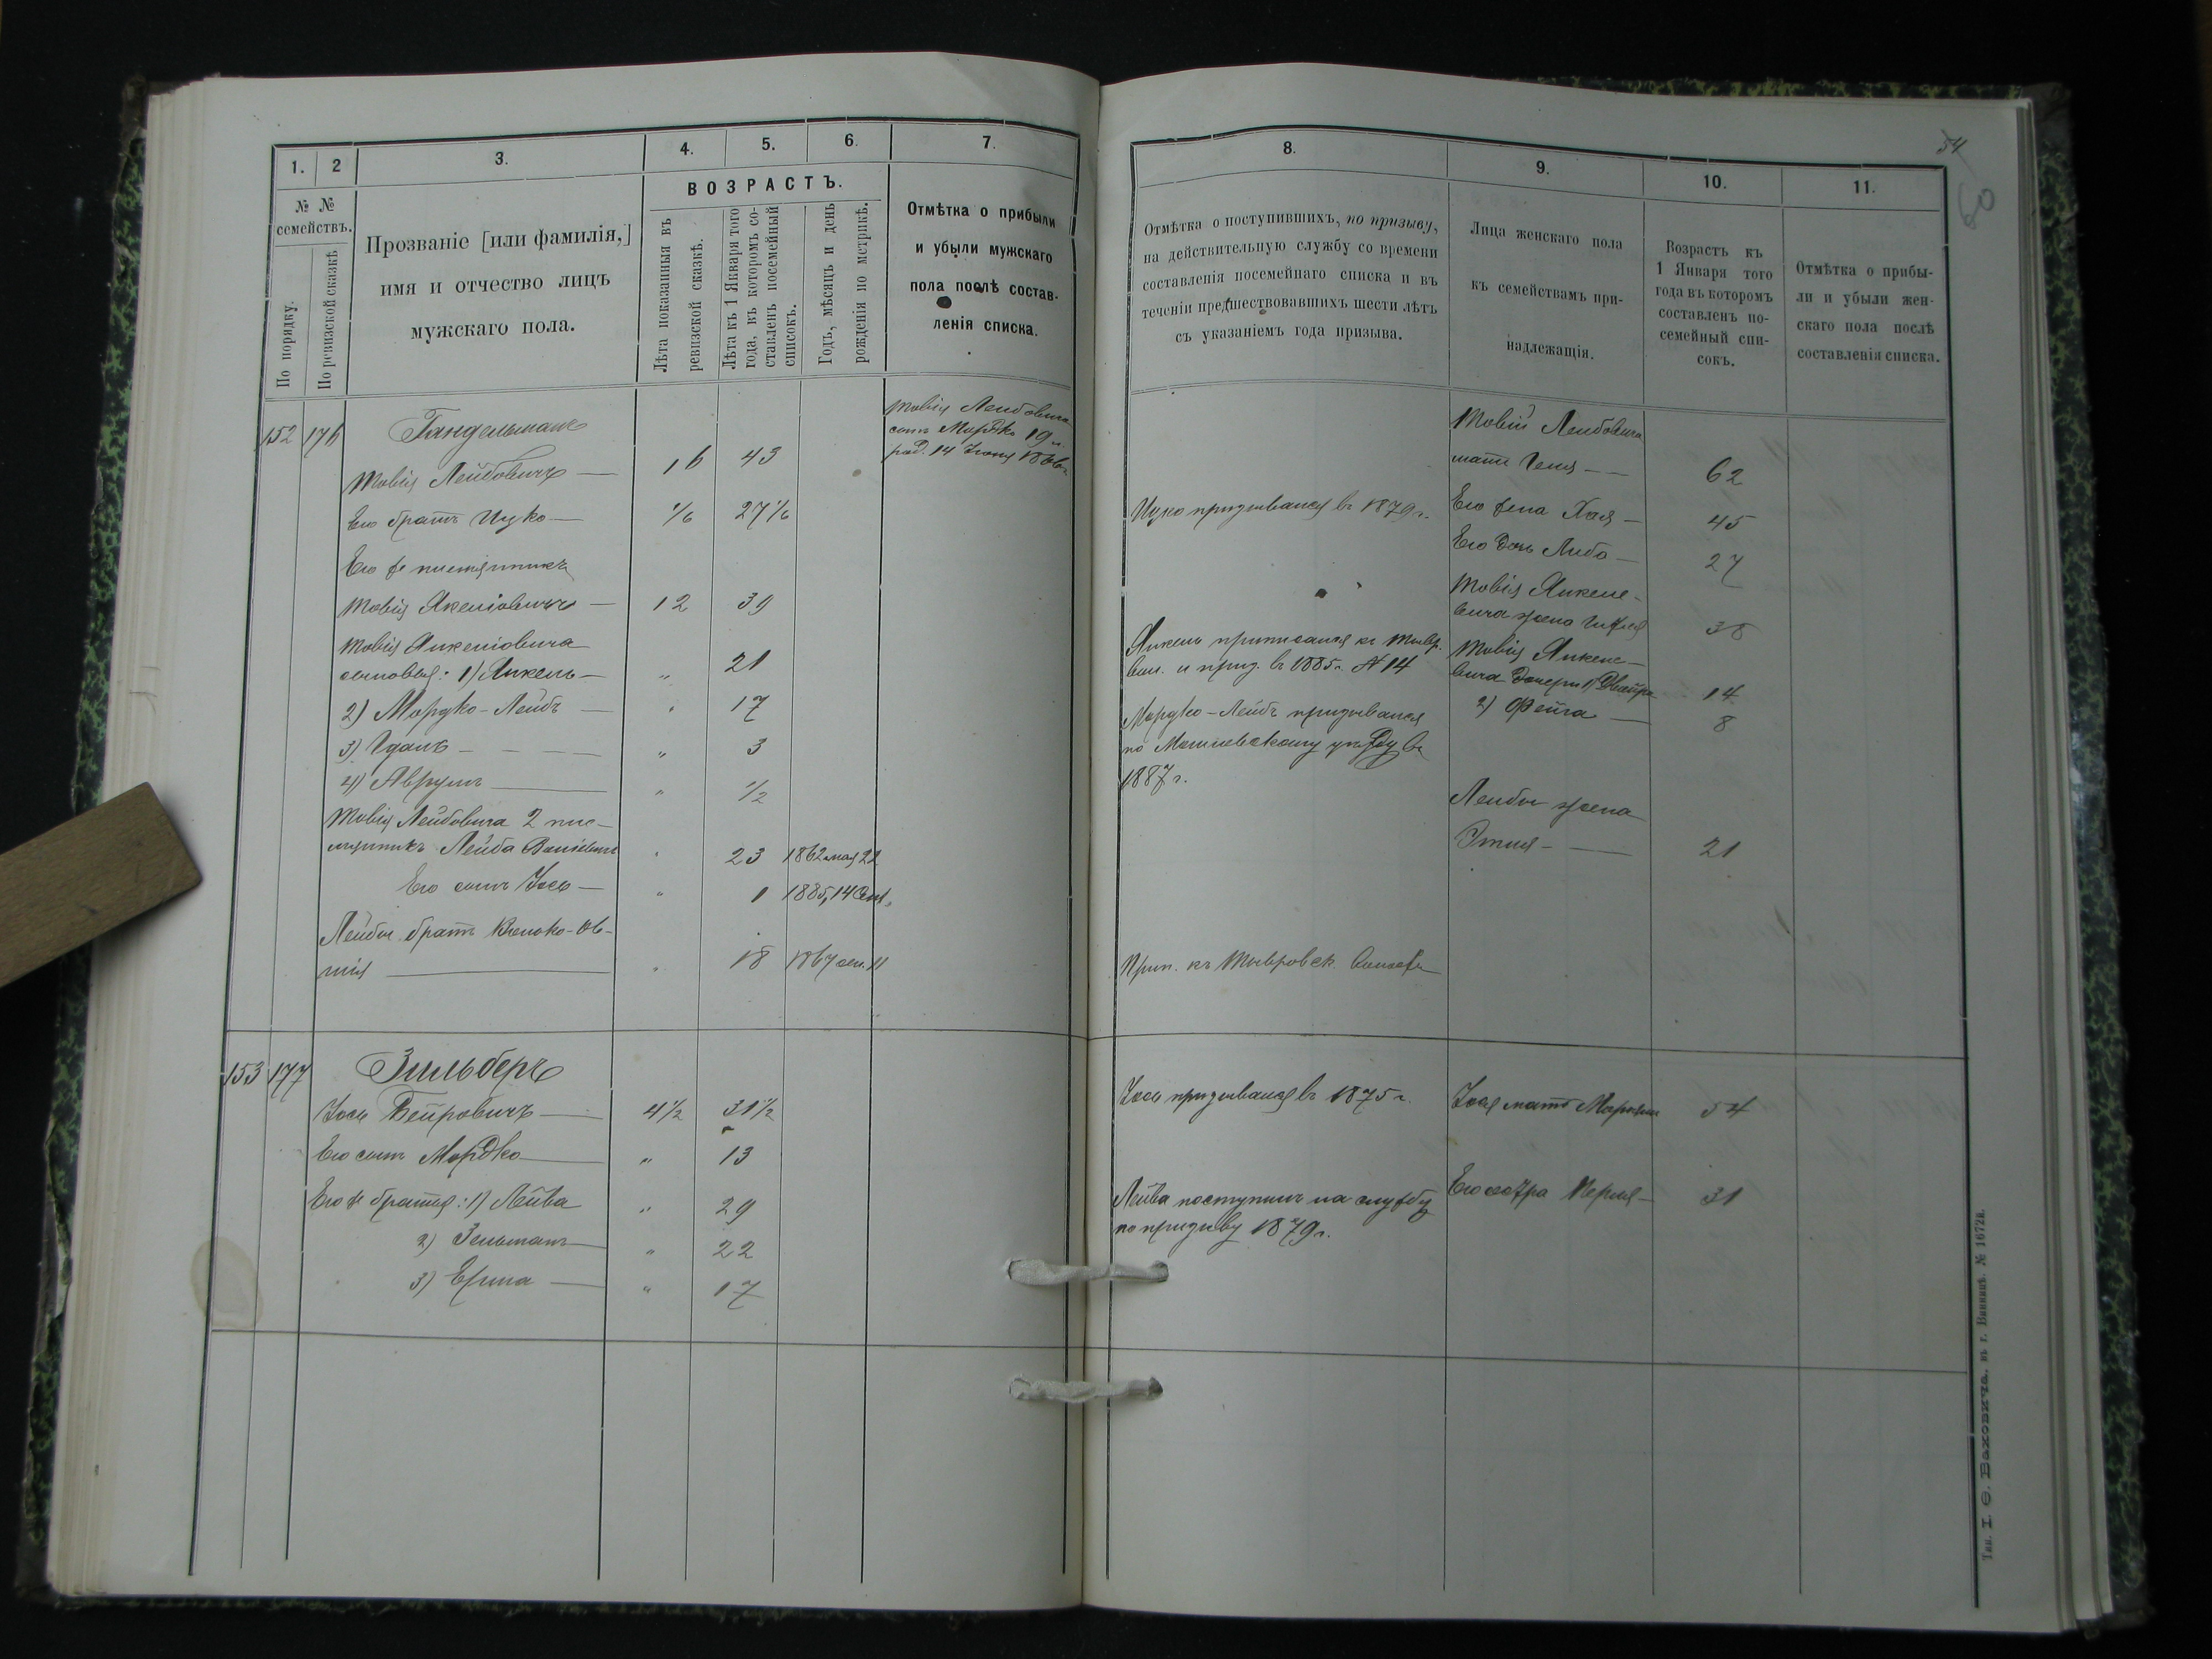 1.
2
3.
4.
5.
6.
7.
№ №
семействъ.
По порядку.
По ревизской сказкѣ
Прозваніе [или фамилія,]
имя и отчество лицъ
мужскаго пола.
ВОЗРАСТЪ.
Лѣта показанныя въ
ревизской сказкѣ.
Лѣта къ 1 Января того
года, въ которомъ со-
ставленъ посемейный
списокъ.
Годъ, мѣсяцъ и день
рожденія по метрикѣ.
Отмѣтка о прибыли
и убыли мужскаго
пола послѣ состав-
ленія списка.
152 176 Гандельманъ
Мовія Лейбовича
сынъ Мордко 19 л.
род. 14 Іюня 1866 г.
Мовія Лейбовичъ — 16 43
Его братъ Ицко — 1/6 27 1/6
Его же племянникъ
Мовія Якеліовичъ — 12 39
Мовія Янкеліовича
сыновья: 1) Янкель — „ 21
2) Мордко-Лейбъ — „ 17
3) Іданъ — — — „ 3
4) Аврумъ — „ 1/2
Мовія Лейбовича 2 пле-
мянникъ Лейба „ 23 1862 мая 22
Его сынъ Іось — „ 1 1885, 14 Сент.
Лейбы братъ
— „ 18 1867 11
153 177 Зильберъ
Іось Беировичъ — 4 1/2 31 1/2
Его сынъ Мордко — „ 13
Его же братья: 1) Лейва „ 29
2) Зельманъ — „ 22
3) — „ 17
54
60
8.
9.
10.
11.
Отмѣтка о поступившихъ, по призыву,
на действительную службу со времени
составленія посемейнаго списка и въ
теченіи предшествовавшихъ шести лѣтъ
съ указаніемъ года призыва.
Лица женскаго пола
къ семействамъ при-
надлежащія.
Возрастъ къ
1 Января того
года въ которомъ
составленъ по-
семейный спи-
сокъ.
Отмѣтка о прибы-
ли и убыли жен-
скаго пола послѣ
составленія списка.
Мовіи Лейбовича
мать Геня — — 62
Ицко призывался въ 1879 г. Его жена Хая — 45
Его дочь Либа — 27
Мовія Янкеле-
вича жена 38
Янкель приписался къ Тывр.
вол. и приз. въ 1885 г. № 14
Мовія Янкеле-
вича дочери 1) Двойра 14
2) Фейга — 8
Мордко-Лейбъ призывался
по Могилевскому уѣзду въ
1887 г.
Лейбы жена
Этля — — 21
Прип. къ Тывровск. волости
Іось призывался въ 1875 г. Іося мать 54
Лейва поступилъ на службу Его сестра Перля — 31
по призыву 1879 г.
Тип. І. Ѳ. Баховича, въ г. Винницѣ. № 1672я.